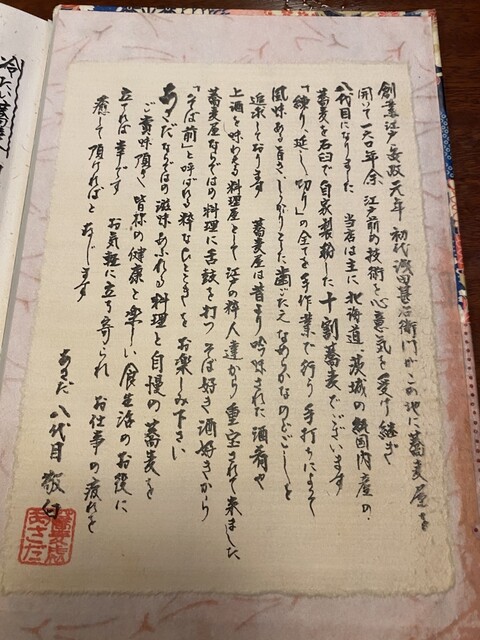 創業江戸安政元年 初代浅田甚右衛門がこの地に蕎麦屋を
開いて一六〇年余 江戸前の技術と心意気を受け継ぎ
八代目になりました 当店は主に北海道 茨城の純国内産の
蕎麦を石臼で自家製粉した十割蕎麦でございます
「練り、延し、切り」の全てを手作業で行う手打ちによって
風味ある香り、しっかりとした歯ごたえ なめらかなのどごしを
追求しております 蕎麦屋は昔より吟味された酒肴や
上酒を味わせる料理屋として江戸の粋人達から重宝されて来ました
蕎麦屋ならではの料理に舌鼓を打つ そば好き酒好きから
「そば前」と呼ばれる粋なひとときをお楽しみ下さい
あさだならではの滋味あふれる料理と自慢の蕎麦を
ご賞味頂き 皆様の健康と楽しい食生活のお役に
立てれば幸です お気軽に立ち寄られ お仕事の疲れを
癒して頂ければと存じます
あさだ 八代目 敬白
蕎麦處
あさだ
冷たい蕎麦